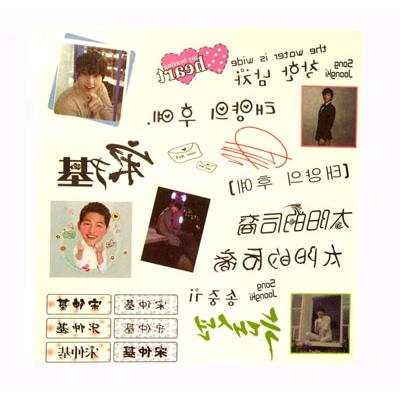 heart
the water is wide
Song Joongki
착한 남자
태양의 후예.
宋仲基
[태양의 후예]
太阳的后裔
太阳的后裔
Song Joongki
송중기
늑대소년
宋仲基
宋仲基
宋仲基
宋仲基
宋仲基
宋仲基